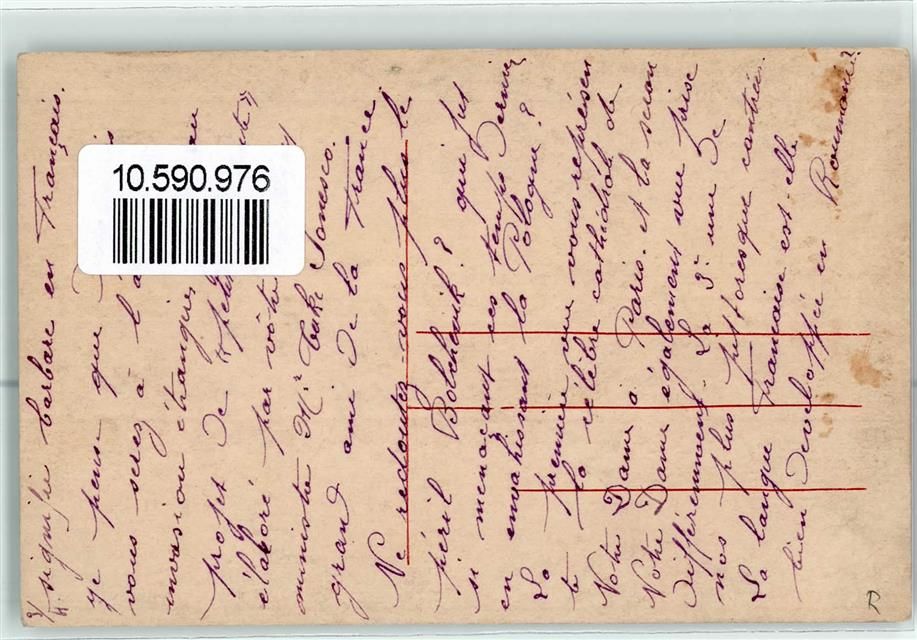 signifie barbare en français.
je pense que
vous serez à l'a
invasion étrangè
projet de "petite
élaboré par vôtre
ministre Mr Také Jonesco.
grand ami de la France.
Ne redoutez-vous plus le
péril Bolchevik? qui fut
si menaçant ces temps Dernier
en envahissant la Pologne?
La première vue vous représen
te la célèbre cathédrale de
Notre Dame à Paris. et la scion
Notre Dame également vue prise
différemment. La 3e une de
nos plus pittoresque contrée.
La langue française est elle
bien developpée en Roumanie?
10.590.976
R